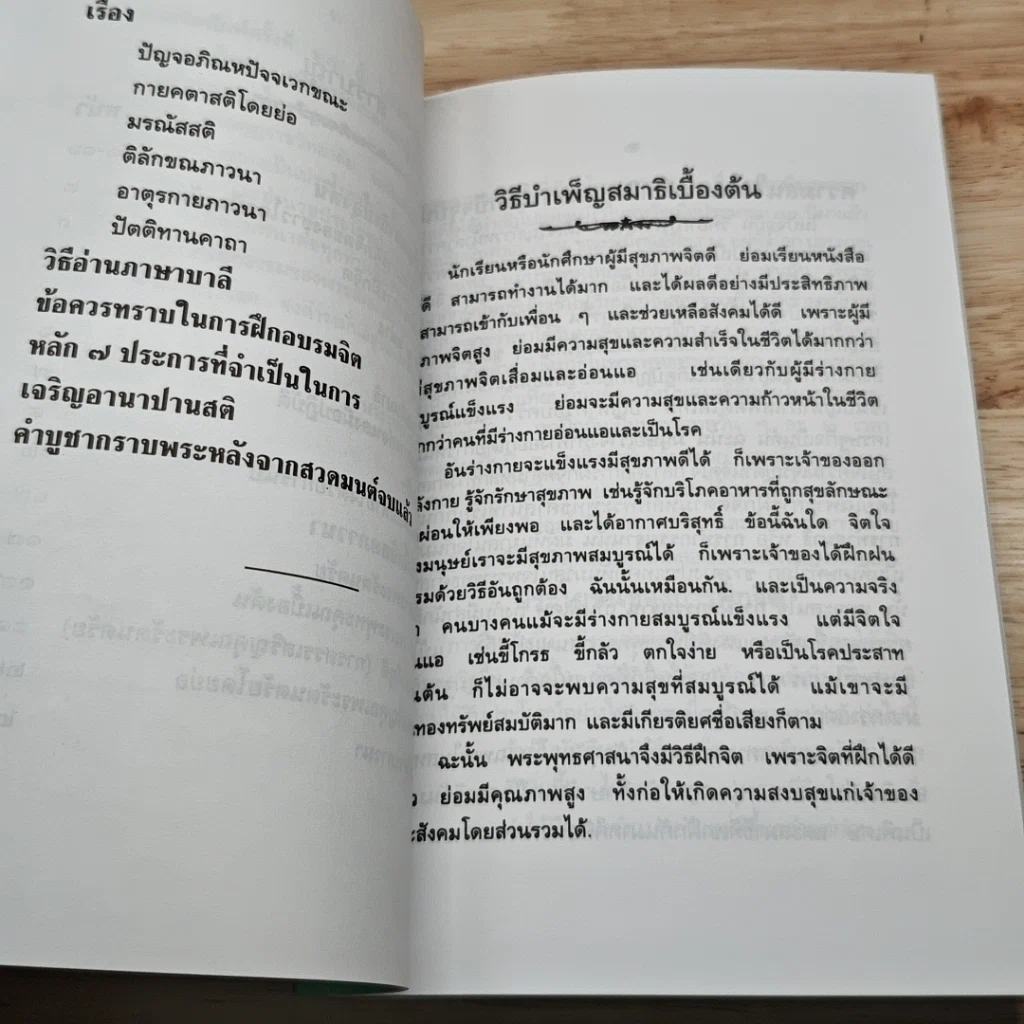 เรื่อง
ปัญจอภิณหปัจจเวกขณะ
กายคตาสติโดยย่อ
มรณัสสติ
ติลักขณภาวนา
อาตุรกายภาวนา
ปัตติทานคาถา
วิธีอ่านภาษาบาลี
ข้อควรทราบในการฝึกอบรมจิต
หลัก ๗ ประการที่จำเป็นในการ
เจริญอานาปานสติ
คำบูชากราบพระหลังจากสวดมนต์จบแล้ว
วิธีบำเพ็ญสมาธิเบื้องต้น
นักเรียนหรือนักศึกษาผู้มีสุขภาพจิตดี ย่อมเรียนหนังสือ
ดี สามารถทำงานได้มาก และได้ผลดีอย่างมีประสิทธิภาพ
สามารถเข้ากับเพื่อน ๆ และช่วยเหลือสังคมได้ดี เพราะผู้มี
ภาพจิตสูง ย่อมมีความสุขและความสำเร็จในชีวิตได้มากกว่า
สุขภาพจิตเสื่อมและอ่อนแอ เช่นเดียวกับผู้มีร่างกาย
บูรณ์แข็งแรง ย่อมจะมีความสุขและความก้าวหน้าในชีวิต
กว่าคนที่มีร่างกายอ่อนแอและเป็นโรค
อันร่างกายจะแข็งแรงมีสุขภาพดีได้ ก็เพราะเจ้าของออก
ลังกาย รู้จักรักษาสุขภาพ เช่นรู้จักบริโภคอาหารที่ถูกสุขลักษณะ
ผ่อนให้เพียงพอ และได้อากาศบริสุทธิ์ ข้อนี้ฉันใด จิตใจ
งมนุษย์เราจะมีสุขภาพสมบูรณ์ได้ ก็เพราะเจ้าของได้ฝึกฝน
รมด้วยวิธีอันถูกต้อง ฉันนั้นเหมือนกัน. และเป็นความจริง
คนบางคนแม้จะมีร่างกายสมบูรณ์แข็งแรง แต่มีจิตใจ
นแอ เช่นขี้โกรธ ขี้กลัว ตกใจง่าย หรือเป็นโรคประสาท
นต้น ก็ไม่อาจจะพบความสุขที่สมบูรณ์ได้ แม้เขาจะมี
ทองทรัพย์สมบัติมาก และมีเกียรติยศชื่อเสียงก็ตาม
ฉะนั้น พระพุทธศาสนาจึงมีวิธีฝึกจิต เพราะจิตที่ฝึกได้ดี
ว ย่อมมีคุณภาพสูง ทั้งก่อให้เกิดความสงบสุขแก่เจ้าของ
ะสังคมโดยส่วนรวมได้.